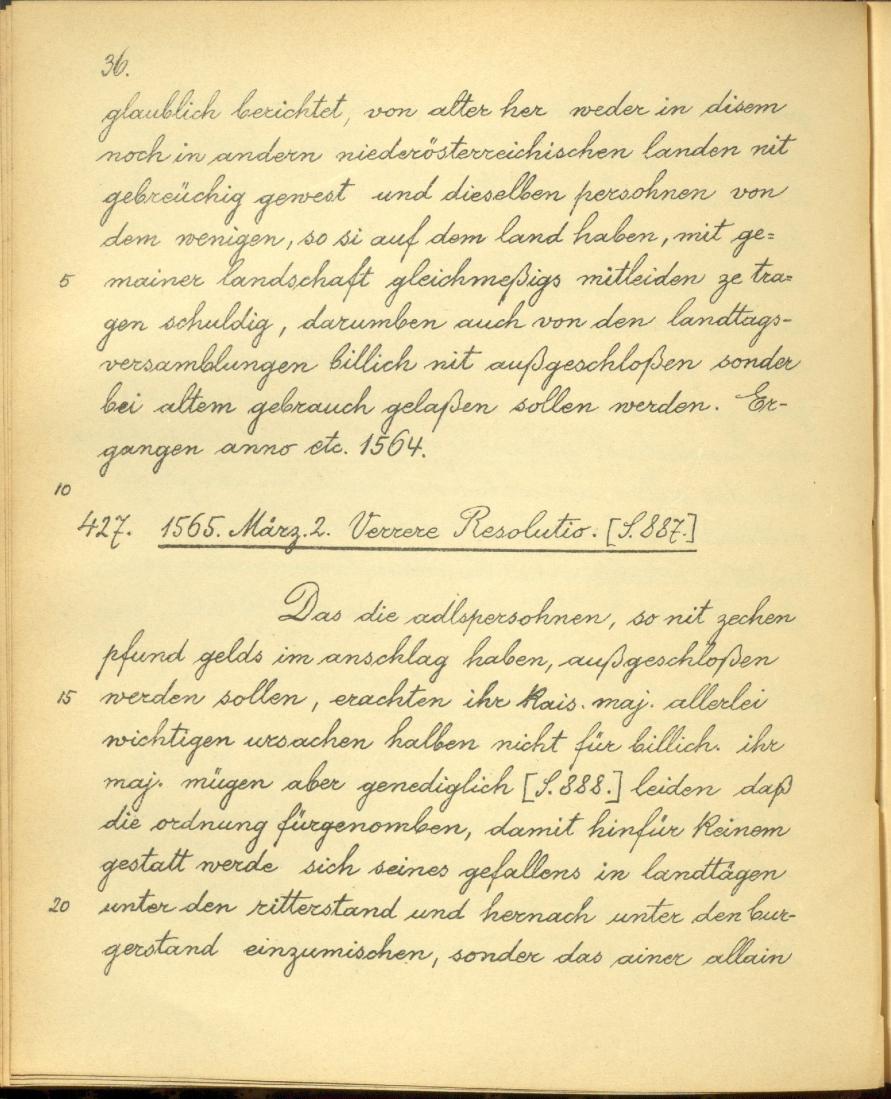 36.
glaublich berichtet, von alter her weder in disem
noch in andern niederösterreichischen landen nit
gebreüchig gewest und dieselben persohnen von
dem wenigen, so si auf dem land haben, mit ge=
5 mainer landschaft gleichmeßigs mitleiden ze tra=
gen schuldig, darumben auch von den landtags-
versamblungen billich nit außgeschloßen sonder
bei altem gebrauch gelaßen sollen werden. Er-
gangen anno etc. 1564.
10
427. 1565. März. 2. Verrere Resolutio. [S. 887.]
Das die adlspersohnen, so nit zechen
pfund gelds im anschlag haben, außgeschloßen
15 werden sollen, erachten ihr Kais. maj. allerlei
wichtigen ursachen halben nicht für billich. ihr
maj. mügen aber genediglich [S. 888.] leiden daß
die ordnung fürgenomben, damit hinfür keinem
gestatt werde sich seines gefallens in landtägen
20 unter den ritterstand und hernach unter den bur-
gerstand einzumischen, sonder das ainer allain